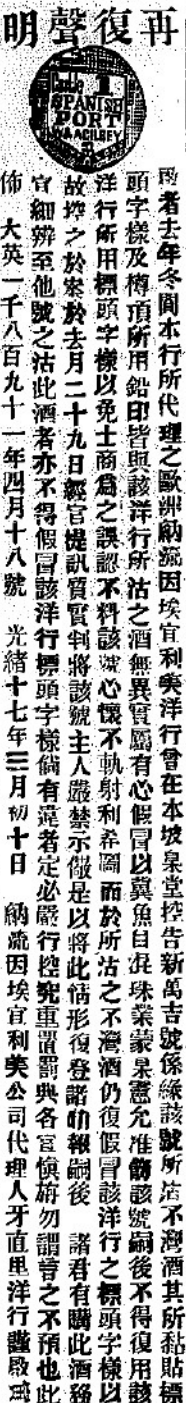 再復聲明
Castle 1
SPANISH
PORT
啟者去年冬間本行所代理之歐洲納流因埃宜利美洋行曾在本坡臬堂控告新萬吉號係緣該號所沽不灣酒其所黏貼標
頭字樣及樽頂所用鉛印皆與該洋行所沽之酒無異實屬有心假冒以冀魚目混珠業蒙臬憲允准飭該號嗣後不得復用該
洋行所用標頭字樣以免士商為之誤認不料該號心懷不軌射利希圖而於所沽之不灣酒仍復假冒該洋行之標頭字樣以
故控之於案於去月二十九日經官提訊質實判將該號主人嚴禁示儆是以將此情形復登諸叻報嗣後 諸君有購此酒務
宜細辨至他號之沽此酒者亦不得假冒該洋行標頭字樣倘有違者定必嚴行控究重置罰與各宜慎旃勿謂言之不預也此
佈 大英一千八百九十一年四月十八號 光緒十七年三月初十日 納流因埃宜利美公司代理人牙直里洋行謹啟